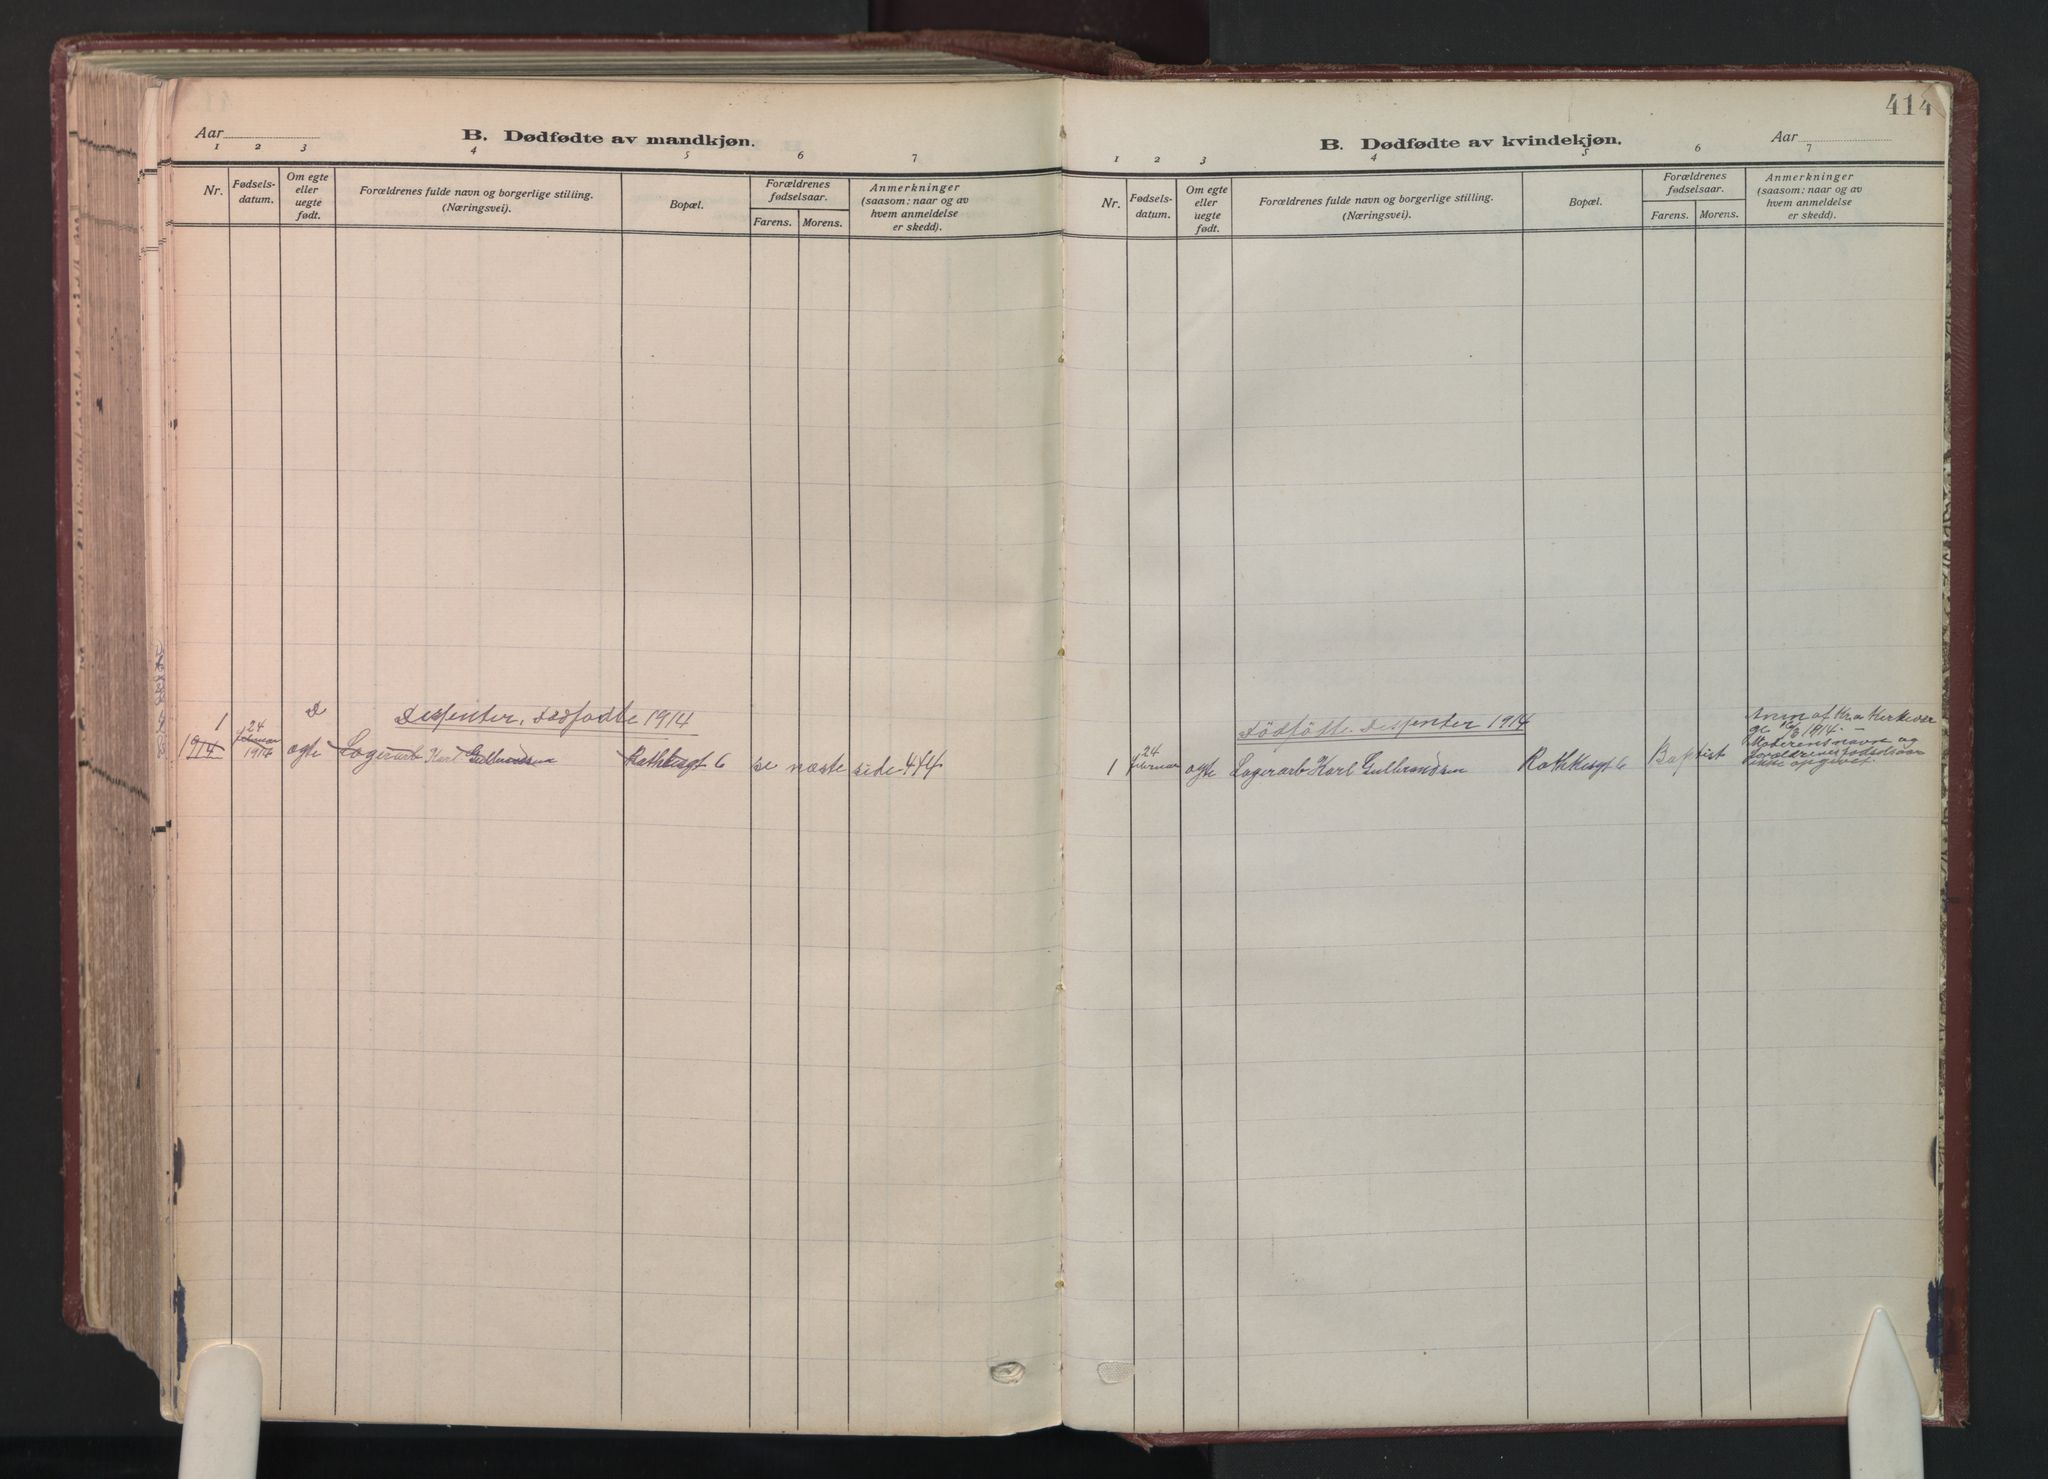 Aar
B. Dødfødte av mandkjøn.
1 2 3 4 5 6 7
Nr.
Fødsels-
datum.
Om egte
eller
uegte
født.
Forældrenes fulde navn og borgerlige stilling.
(Næringsvei).
Bopæl.
Forældrenes
fødselsaar.
Farens. Morens.
Anmerkninger
(saasom: naar og av
hvem anmeldelse
er skedd).
D
Dissenter, dødfødte 1914
1
1914
24
februar
1914
ogte Lagerarb Karl Gulbrandsen Rathkesgt 6 se næste side 414
414
B. Dødfødte av kvindekjøn.
Aar
1 2 3 4 5 6 7
Nr.
Fødsels-
datum.
Om egte
eller
uegte
født.
Forældrenes fulde navn og borgerlige stilling.
(Næringsvei).
Bopæl.
Forældrenes
fødselsaar.
Farens. Morens.
Anmerkninger
(saasom: naar og av
hvem anmeldelse
er skedd).
Dödfödte Dissenter 1914
1
24
februar
ogte Lagerarb Karl Gulbrandsen Rathkesgt 6 Baptist
Anm af Kr.a Kirkever
1914.
Moderens navn og
foraldrenes fødselsaar
ikke opgivet.